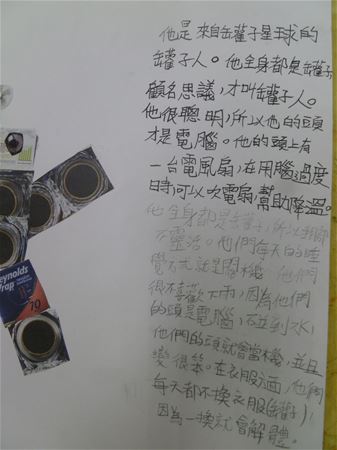 他是來自罐子星球的
罐子人。他全身都是罐子,
顧名思議,才叫罐子人。
他很聰明,所以他的頭
才是電腦。他的頭上有
一台電風扇,在用腦過度
時可以吹電扇,幫助降溫。
他全身都是罐子,所以
不靈活。他們每天的睡
覺方式就是關機。他們
很不喜歡下雨,因為他們
的頭是電腦,碰到水,
他們的頭就會當機,並且
變很笨。在衣服方面,他們
每天都不換衣服(罐子),
因為一換就會解體。
eynolds
rap
70